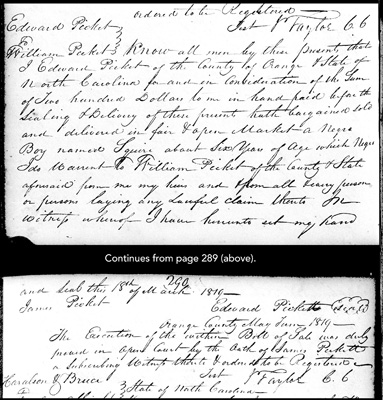 ordered to be Registered
Edward Picket Test J Taylor CC
To
William Picket Know all men by these presents that
I Edward Picket of the County of Orange & State of
North Carolina for and in Consideration of the Sum
of Two hundred Dollars to me in hand paid before the
Sealing & Delivery of these presents hath bargained sold
and delivered in fair & open Market a Negro
Boy named Squire about Six Years of Age which Negro
I do Warrent to William Picket of the County & State
aforesaid from me my heirs and from all & every person
or persons laying any Lawful claim thereto In
Witness whereof I have hereunto set my hand
Continues from page 289 (above).
290
and Seal this 18th of March 1819
James Picket Edward Pickett (Seal)
Orange County May Term 1819
The Execution of the within Bill of Sale was duly
proved in Open Court by the Oath of James Pickett
a Subscribing Witness thereto & ordered to be Registered
Haralson & Bruce Test J Taylor CC
State of North Carolina